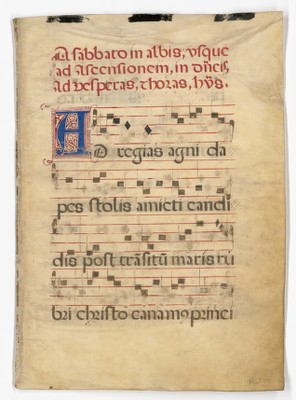 A sabbato in albis, vsque
ad ascensionem, in dñcis,
ad vesperas, & horas, hỹs.
AD regias agni da
pes stolis amicti candi
dis post trãsitũ maris ru
bri christo canamꝰ princi